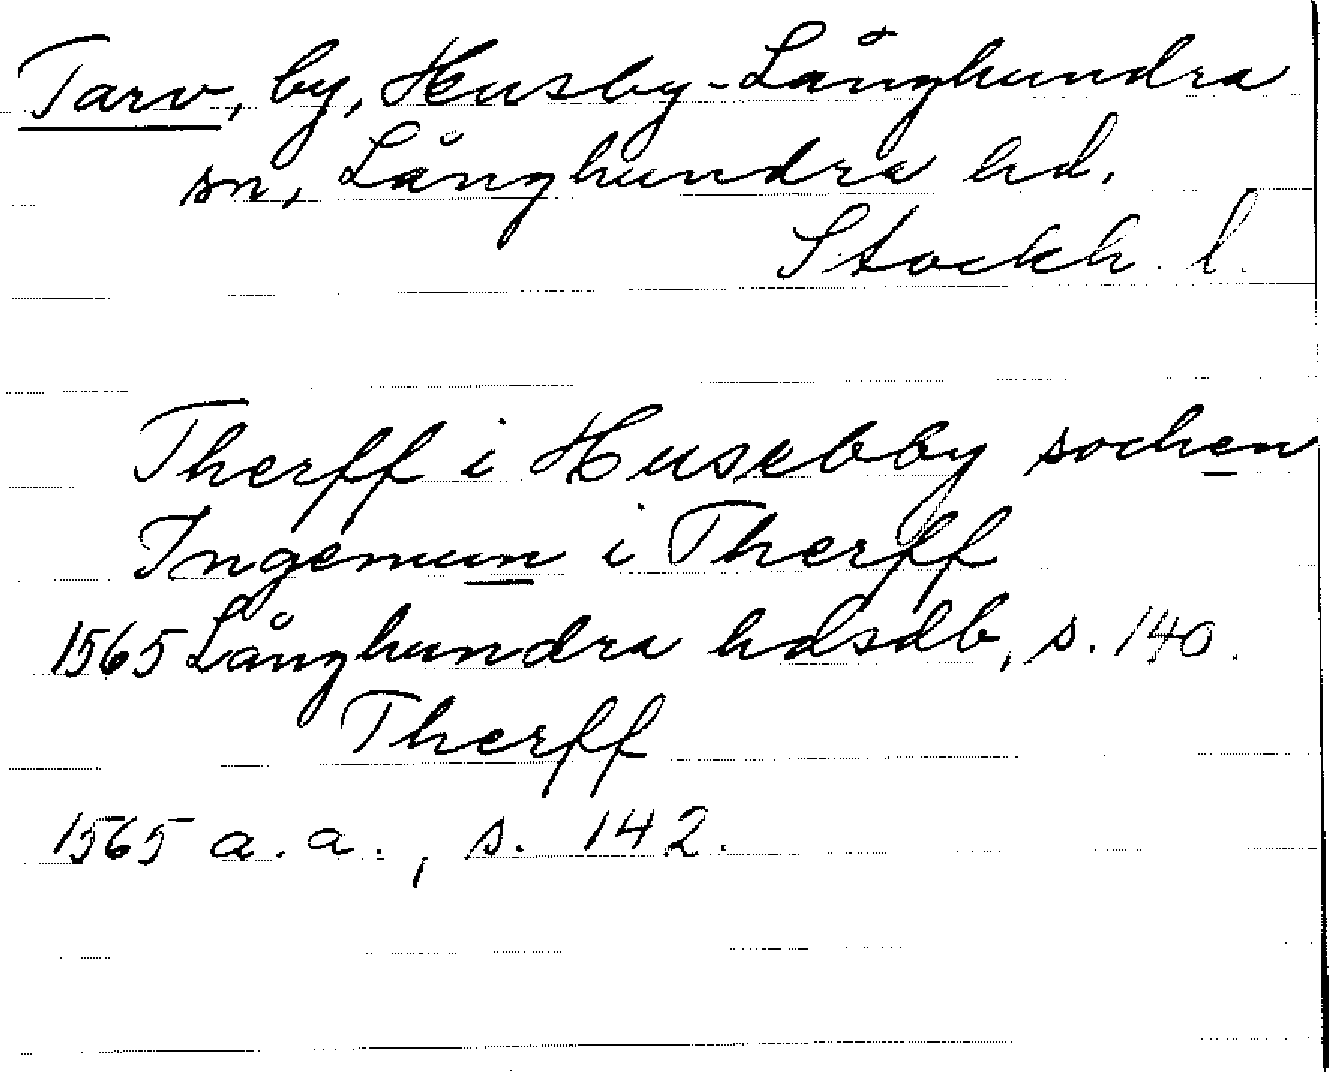 Tarv, by, Husby-Långhundra
sn, Långhundra hd,
Stockh. l.
Therff i Husebby sochen
Ingemun i Therff
1565 Långhundra hdsdb, s. 140.
Therff
1565 a.a., s. 142.